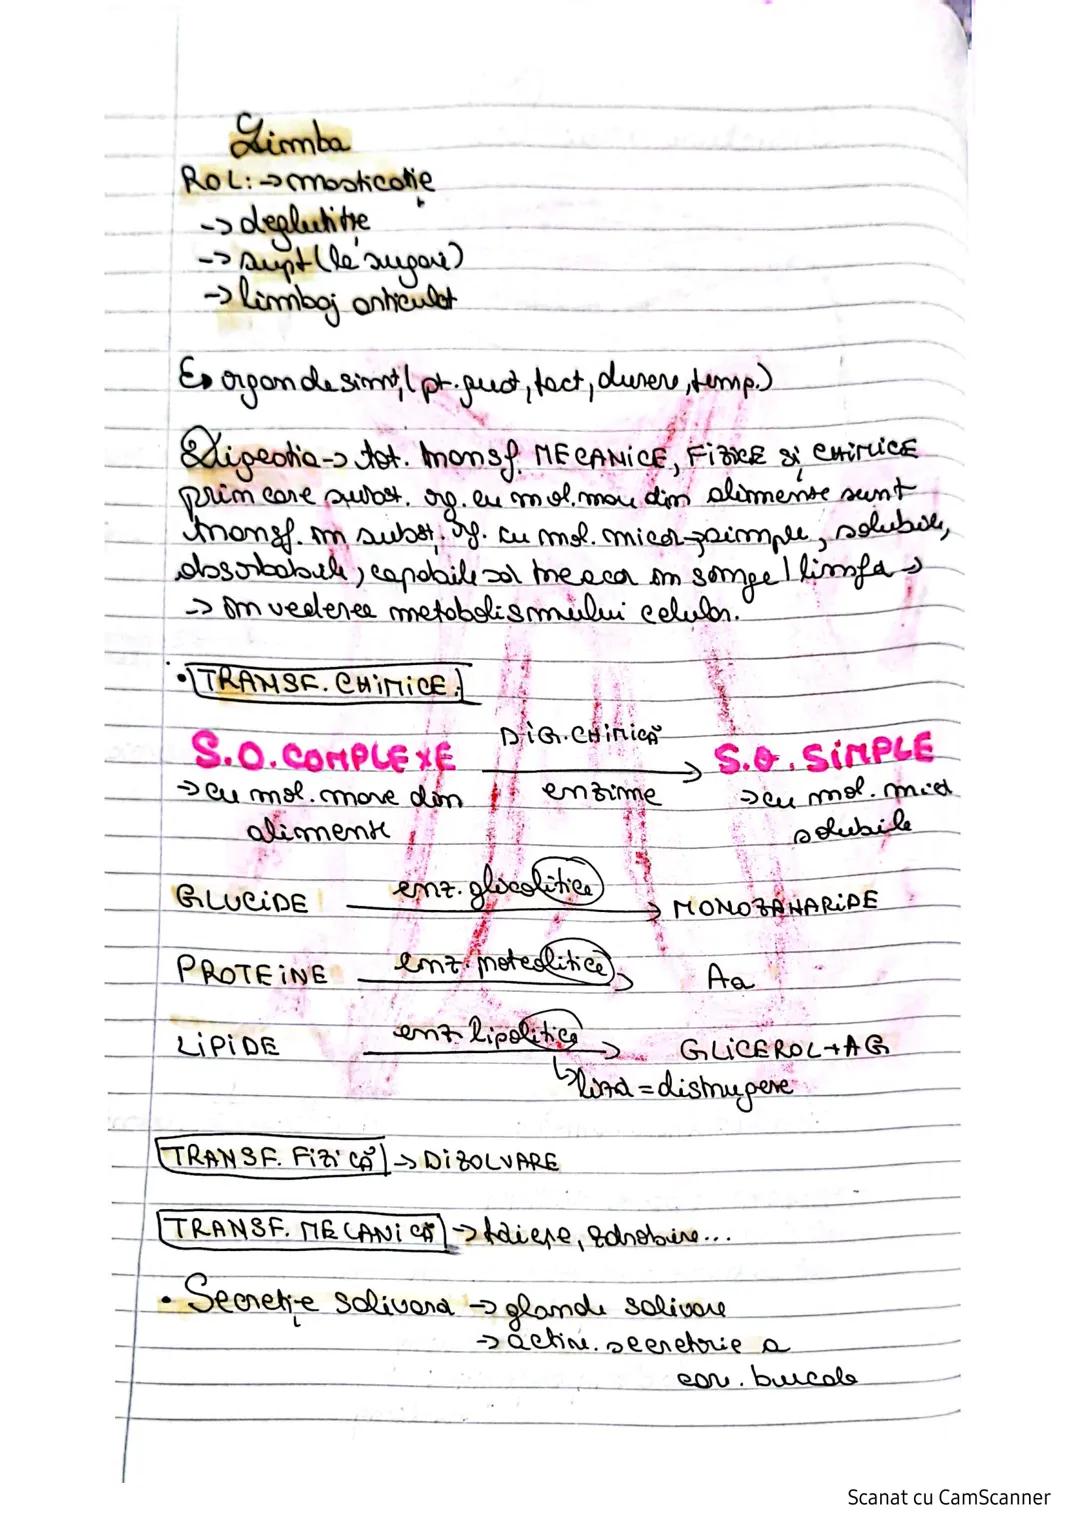 Limba
ROL: -> masticație
-> deglutiție
-> supt (la sugari)
-> limbaj articulat
E organ de simț (pt. gust, tact, durere, temp.)
Digestia -> tot. transf. MECANICE, FIZICE și CHIMICE
prin care subst. org. cu mol. mari din alimente sunt
transf. în subst. org. cu mol. mici -> simple, solubile,
absorbabile, capabile să treacă în sânge | limfă ->
-> în vederea metabolismului celular.
• TRANSF. CHIMICE:
DIG. CHIMICĂ
S.O. COMPLEXE -> S.O. SIMPLE
-> cu mol. mare din enzime -> cu mol. mici
alimente solubile
GLUCIDE enz. glicolitice -> MONOZAHARIDE
PROTEINE enz. proteolitice -> Aa
LIPIDE enz. lipolitice -> GLICEROL + AG
liză = distrugere
TRANSF. FIZICĂ -> DIZOLVARE
TRANSF. MECANICĂ -> tăiere, zdrobire...
• Secreție salivară -> glande salivare
-> activ. secretorie a
cav. bucale
Scanat cu CamScanner